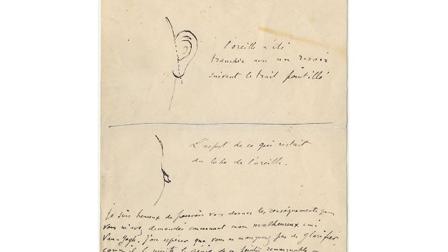 L'oreille a été
tranchée avec un rasoir
suivant le trait pointillé
L'aspect de ce qui restait
du lobe de l'oreille.
Je suis heureux de pouvoir vous donner les renseignements que
vous m'avez demandés concernant mon malheureux ami
Van-Gogh. J'espère que vous ne manquez pas de glorifier
comme il le mérite le génie de ce peintre remarquable